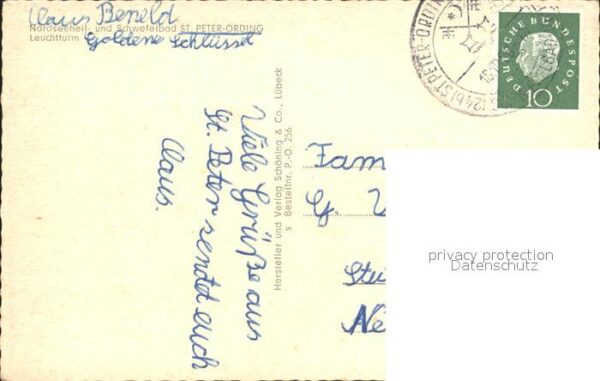 Claus Beneld
Nordseeheil- und Schwefelbad ST. PETER-ORDING
Leuchtturm
Goldene Schlüssel
Viele Grüße aus
St. Peter sendet euch
Claus.
Hersteller und Verlag Schöning & Co., Lübeck
s Bestellnr. P.-O. 256
(24b) ST PETER-ORDIN
DEUTSCHE BUNDESPOST
10
Fam
G.
Stu
Ne
privacy protection
Datenschutz